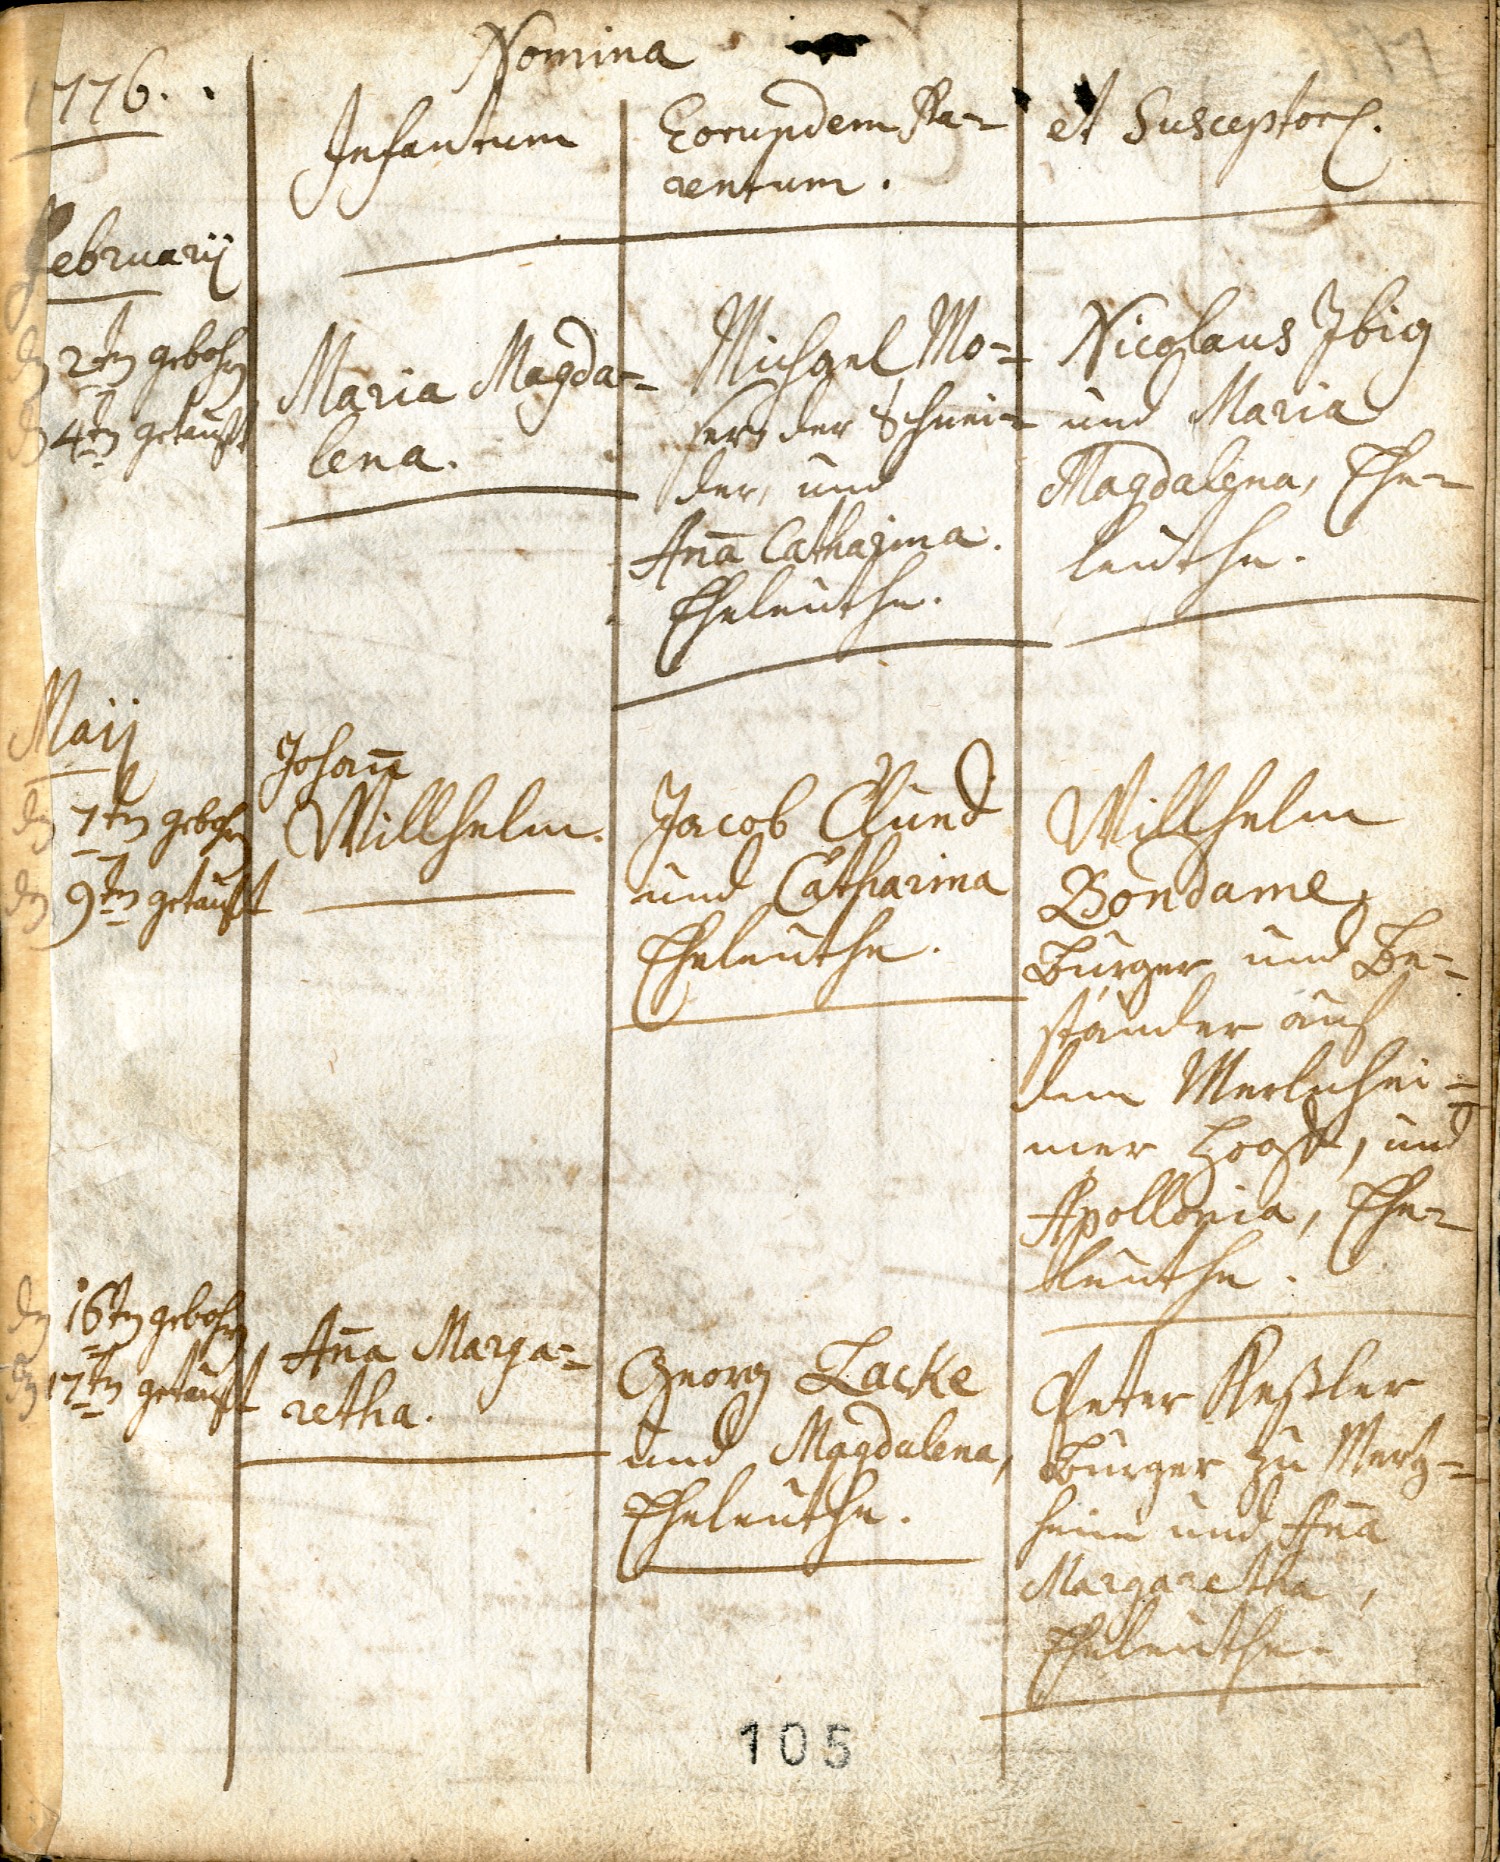 Nomina
1776.
Infantum
Eorundem Pa-
rentum.
et Susceptor.
Februarij
den 2ten gebohren
den 4ten getaufft
Maria Magda-
lena.
Michael Mo-
ser, der Schnei-
der, und
Aña Catharina.
Eheleuthe.
Nicolaus Ibig
und Maria
Magdalena, Ehe-
leuthe.
Maij
den 7ten gebohren
den 9ten getaufft
Johañ
Willhelm.
Jacob
und Catharina
Eheleuthe.
Willhelm
Bondame,
Burger und Be-
ständer auf
dem Merlnhei-
mer Hooff, und
Apollonia, Ehe-
leuthe.
den 16ten gebohren
den 17ten getaufft
Aña Marga-
retha.
Georg Lacke
und Magdalena,
Eheleuthe.
Peter Keßler
Burger zu Mertz-
heim und Aña
Margaretha,
Eheleuthe.
105